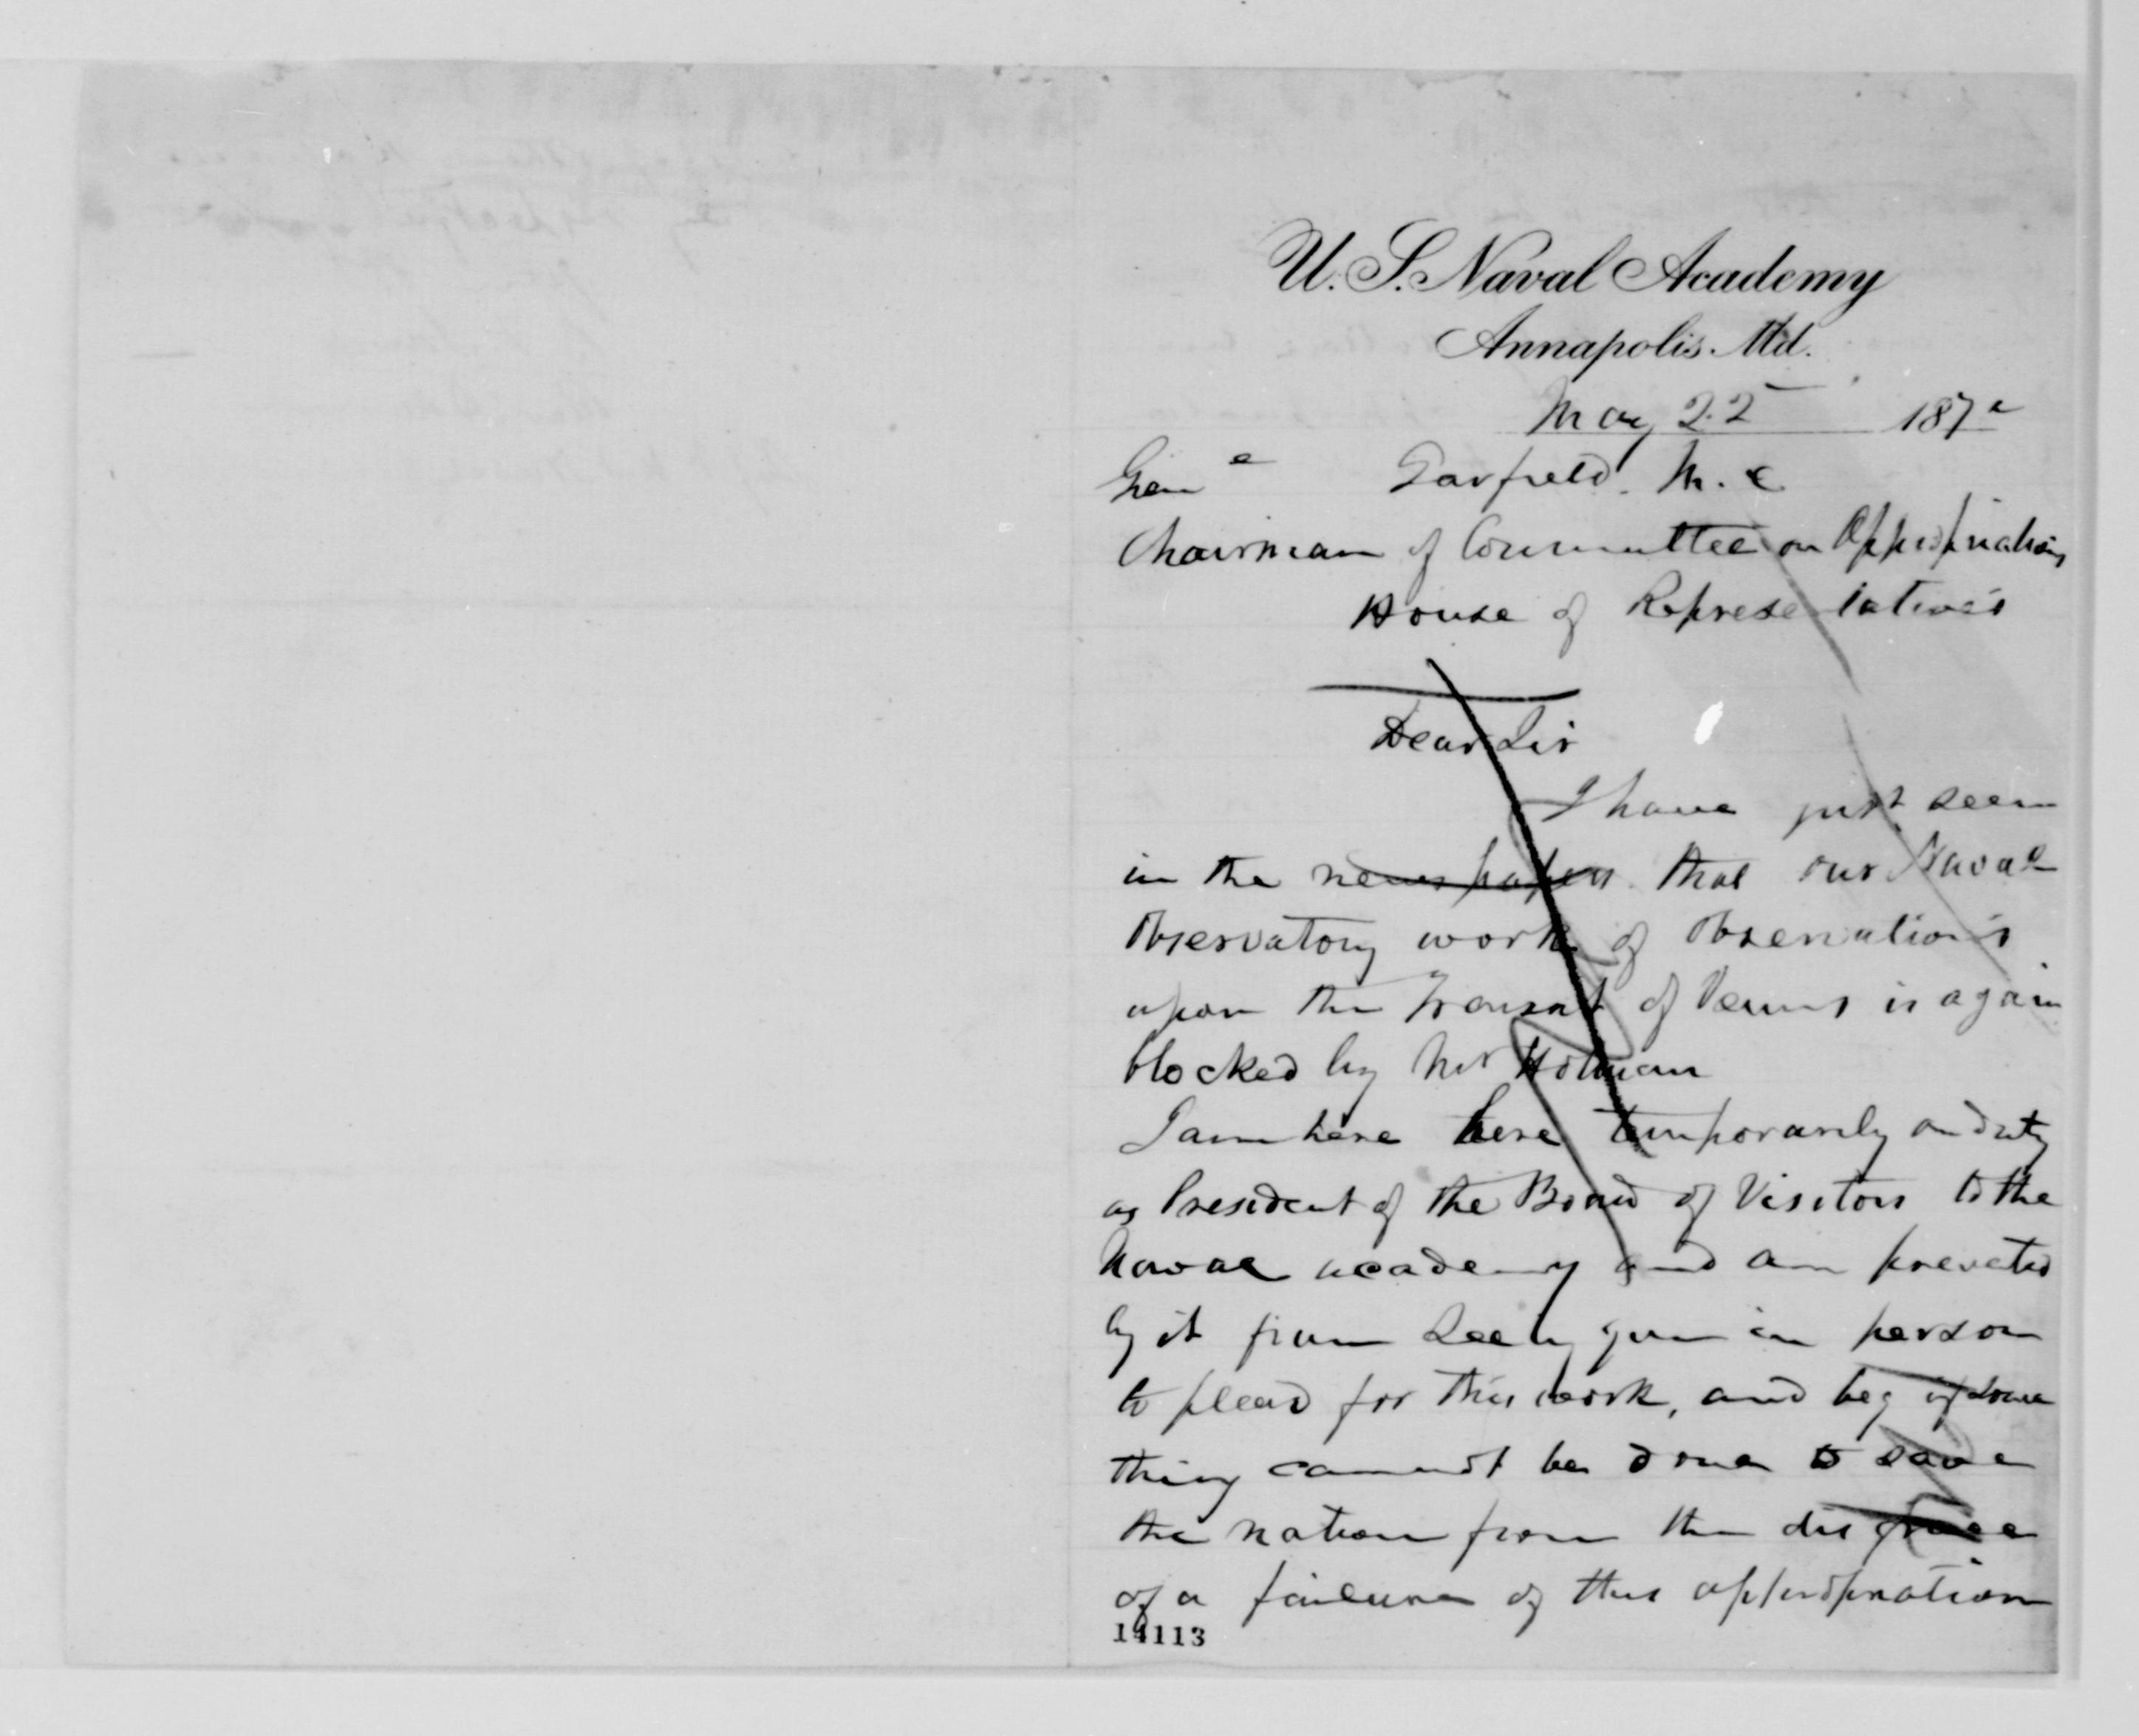 U. S. Naval Academy
Annapolis. Md.
May 22 187
Genl Garfield. M. C
Chairman of Committee on Appropriations
House of Representatives
Dear Sir
I have just seen
in the newspapers that our Naval
Observatory work of Observations
upon the Transit of Venus is again
blocked by Mr Holman
I am here here temporarily on duty
as President of the Board of Visitors to the
Naval academy and am prevented
by it from seeing you in person
to plead for this work, and beg if some
thing cannot be done to save
the nation from the disgrace
of a failure of this appropriation
14113